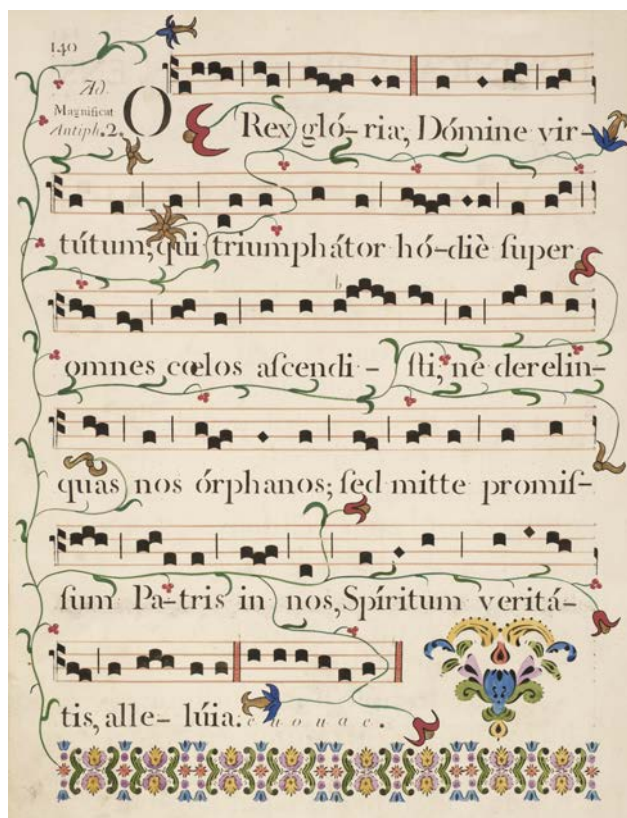 140
Ad
Magnificat
Antiph. 2.
O Rex gló-riæ, Dómine vir-
tútum, qui triumphátor hó-diè ſuper
omnes cœlos aſcendi- ſti, ne derelin-
quas nos órphanos; ſed mitte promiſ-
ſum Pa-tris in nos, Spíritum veritá-
tis, alle- lúia. e u o u a e.